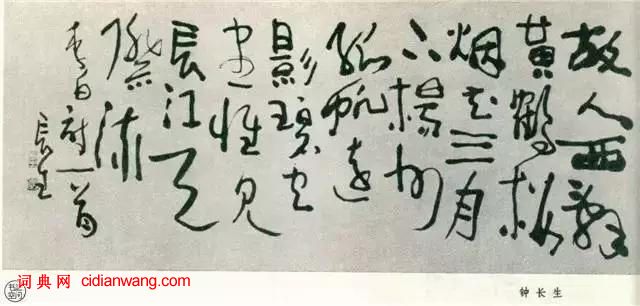 故人西辭
黄鶴楼
烟花三月
下揚州
孤帆遠
影碧空
尽惟見
長江天
際流
李白詩一首
長生
词典网 cidianwang.com
钟长生